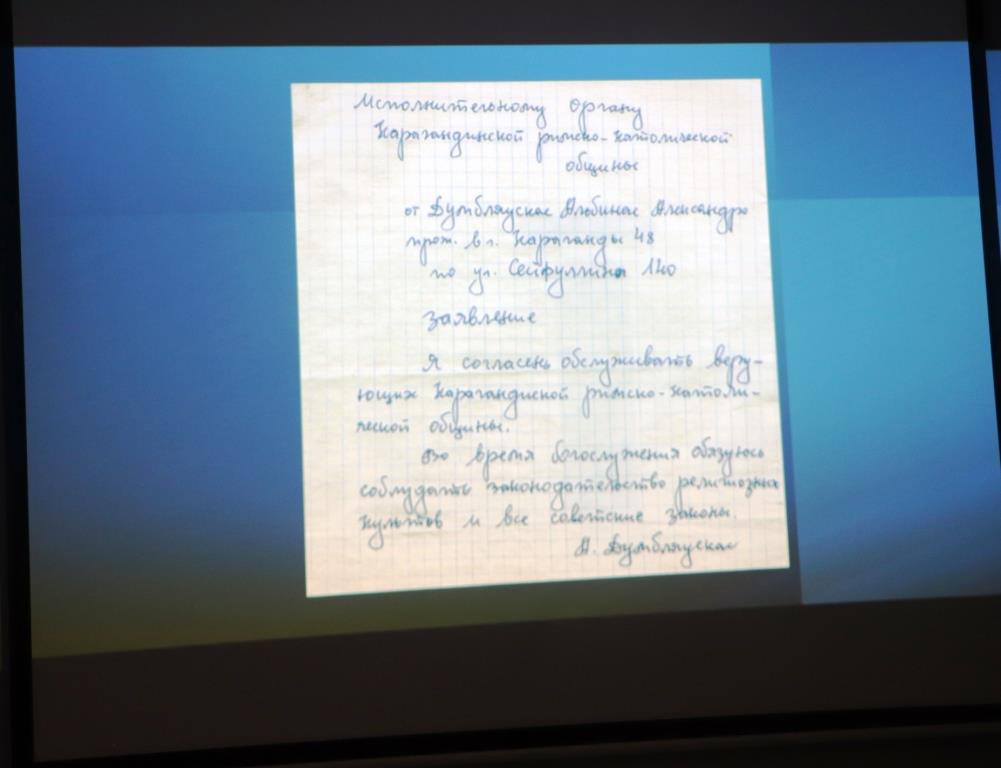 Исполнительному органу
Карагандинской римско-католической
общины
от Думбляускас Альбинас Александро
прож. в г. Караганды 48
по ул. Сейфуллина 140
заявление
Я согласень обслуживать веру-
ющих Карагандиской римско-католи-
ческой общины.
Во время богослужения обязуюсь
соблудать законодательство религиозных
культов и все советские законы.
А. Думбляускас